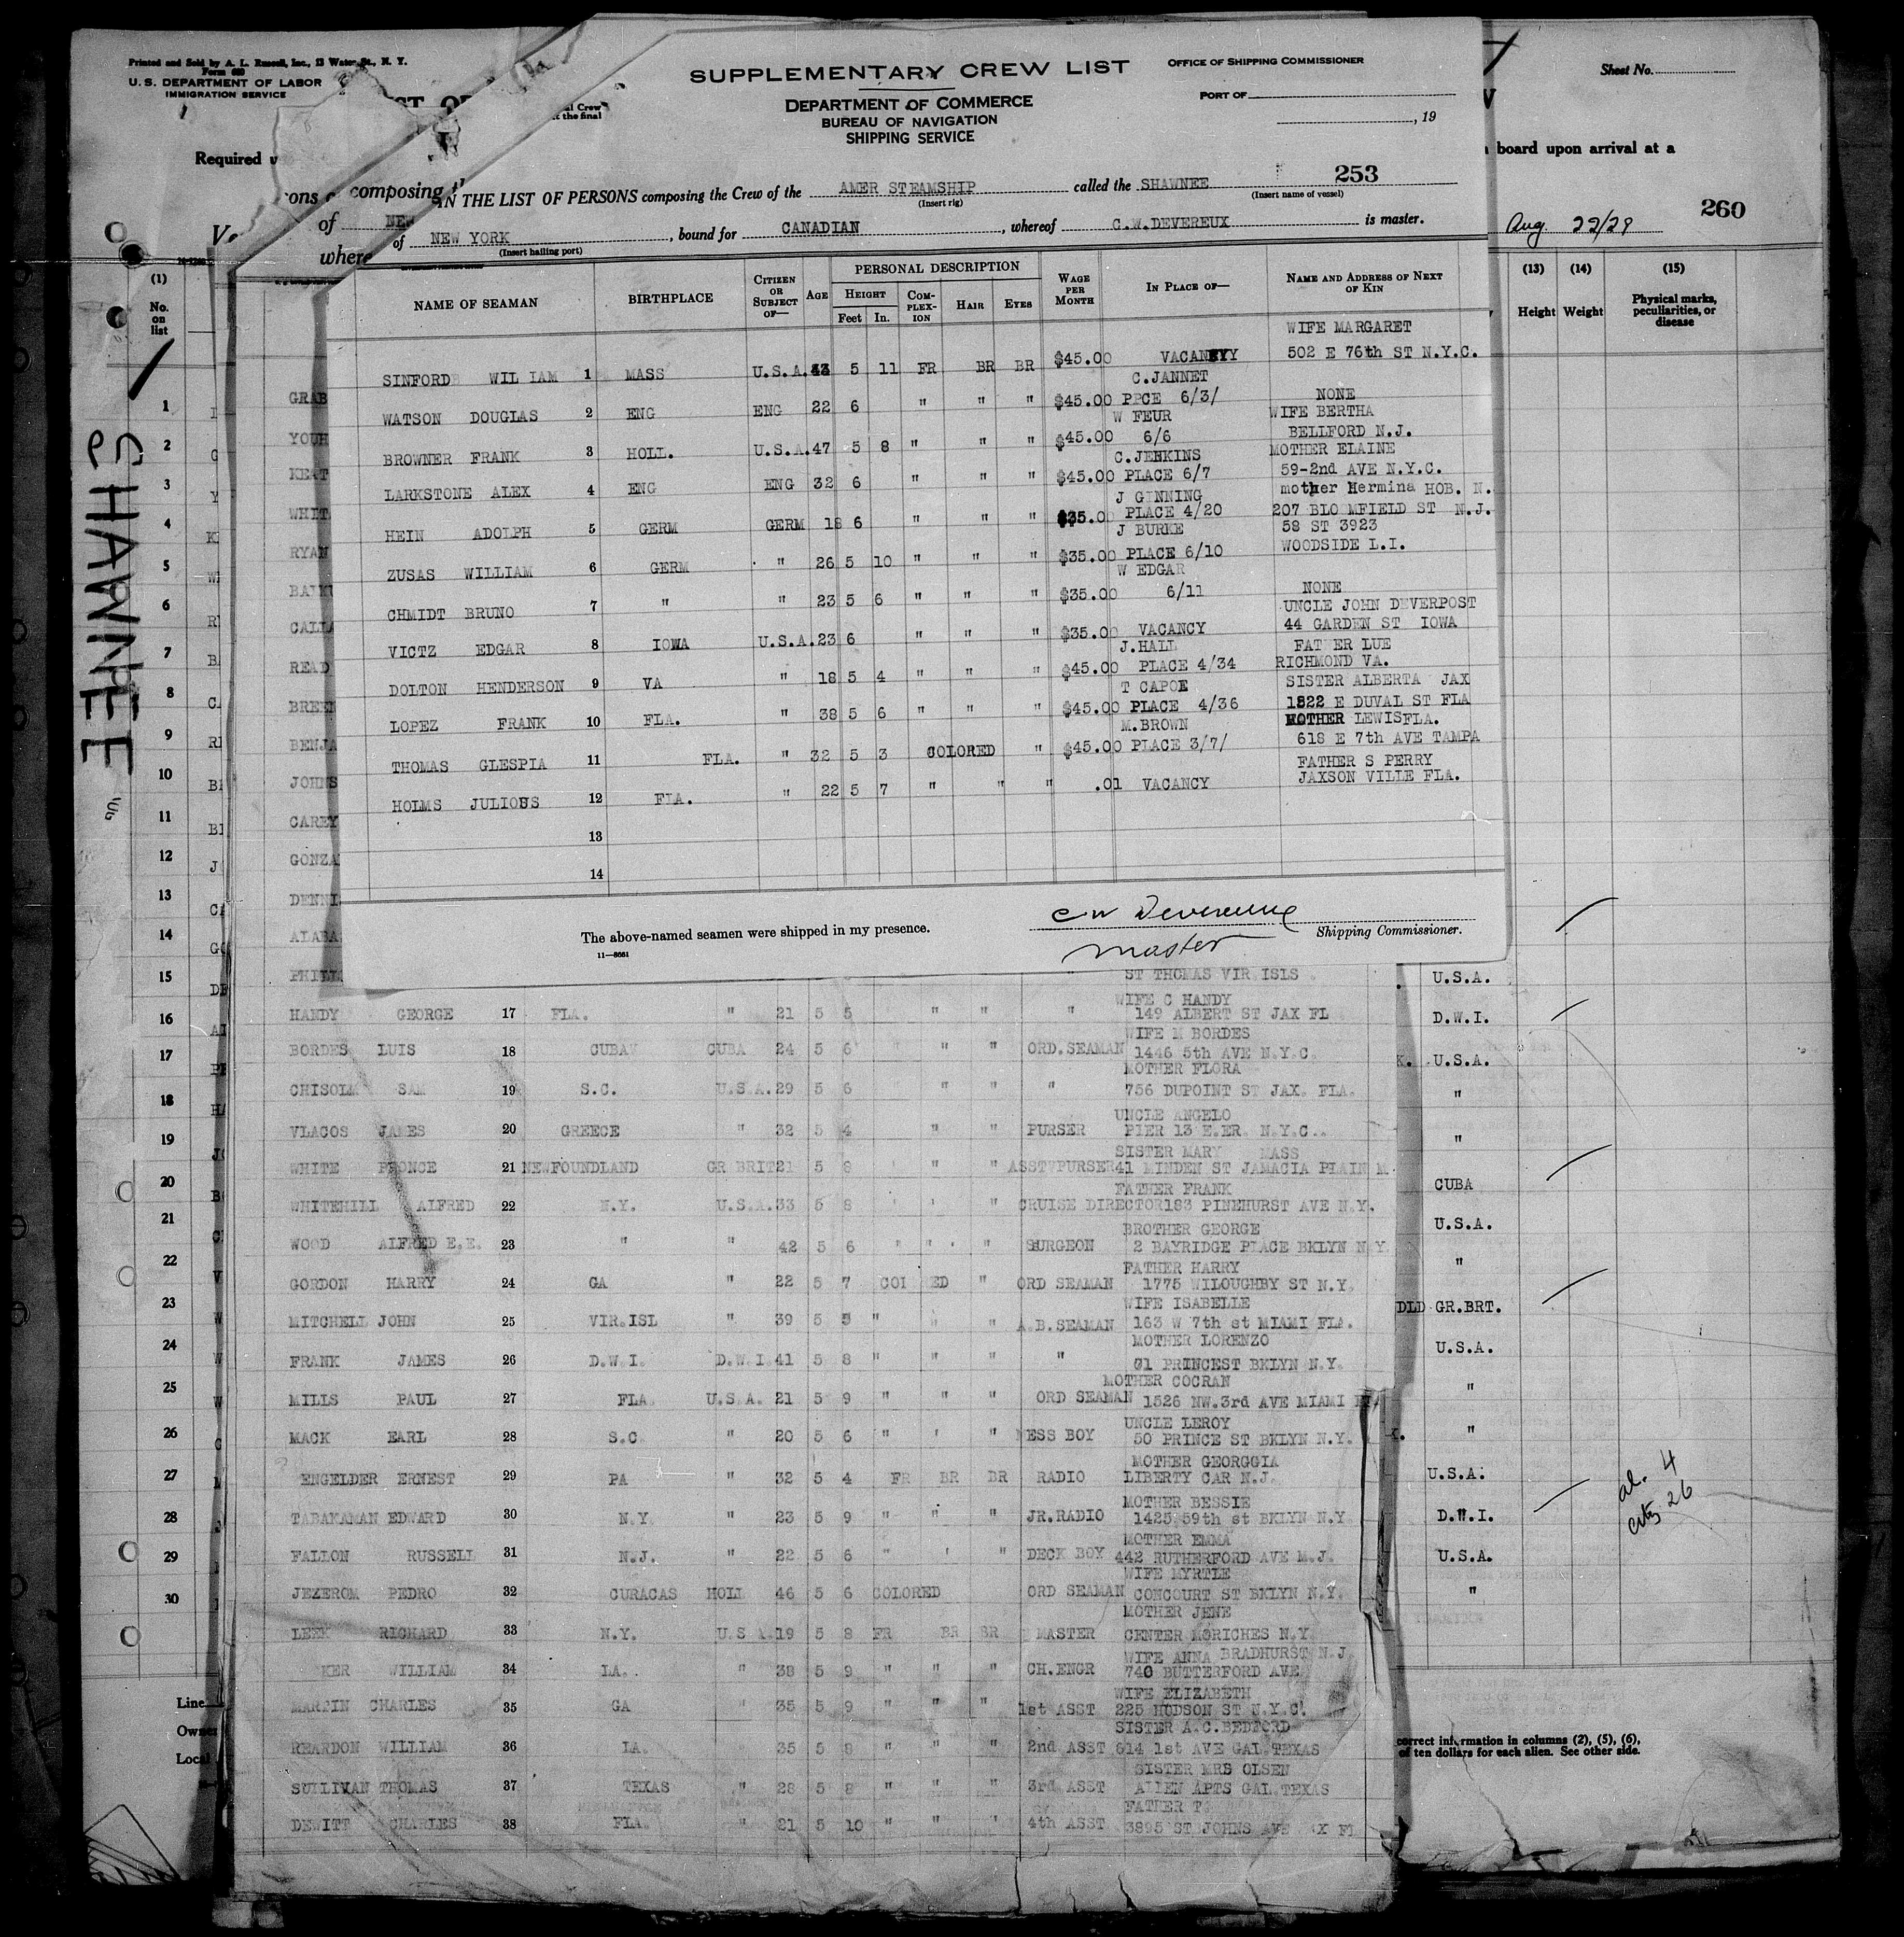 Printed and Sold by A. L. Russell, Inc., 13 Water St., N. Y.
Form 689
U. S. DEPARTMENT OF LABOR
IMMIGRATION SERVICE
Sheet No.
Required u
board upon arrival at a
Aug. 22/29
260
SHAWNEE
SUPPLEMENTARY CREW LIST
OFFICE OF SHIPPING COMMISSIONER
DEPARTMENT OF COMMERCE
BUREAU OF NAVIGATION
SHIPPING SERVICE
PORT OF
, 19
253
IN THE LIST OF PERSONS composing the Crew of the AMER STEAMSHIP called the SHAWNEE
(Insert rig) (Insert name of vessel)
of NEW YORK, bound for CANADIAN, whereof C.W.DEVEREUX is master.
(Insert hailing port)
NAME OF SEAMAN BIRTHPLACE CITIZEN OR SUBJECT OF— AGE PERSONAL DESCRIPTION HEIGHT Feet In. COMPLEXION HAIR EYES WAGE PER MONTH IN PLACE OF— NAME AND ADDRESS OF NEXT OF KIN
WIFE MARGARET
SINFORD WIL IAM 1 MASS U.S.A. 5 11 FR BR BR $45.00 VACANCY 502 E 76th ST N.Y.C.
C.JANNET
WATSON DOUGLAS 2 ENG ENG 22 6 " " " $45.00 PPCE 6/3/ NONE
W FEUR WIFE BERTHA
BROWNER FRANK 3 HOLL. U.S.A. 47 5 8 " " " $45.00 6/6 BELLFORD N.J.
C.JENKINS MOTHER ELAINE
LARKSTONE ALEX 4 ENG ENG 32 6 " " " $45.00 PLACE 6/7 59-2nd AVE N.Y.C.
J GINNING mother Hermina HOB. N.
HEIN ADOLPH 5 GERM GERM 18 6 " " " $35.00 PLACE 4/20 207 BLO MFIELD ST N.J.
J BURKE 58 ST 3923
ZUSAS WILLIAM 6 GERM " 26 5 10 " " " $35.00 PLACE 6/10 WOODSIDE L.I.
W EDGAR
CHMIDT BRUNO 7 " " 23 5 6 " " " $35.00 6/11 NONE
UNCLE JOHN DEVERPOST
VICTZ EDGAR 8 IOWA U.S.A. 23 6 " " " $35.00 VACANCY 44 GARDEN ST IOWA
J.HALL FAT ER LUE
DOLTON HENDERSON 9 VA " 18 5 4 " " " $45.00 PLACE 4/34 RICHMOND VA.
T CAPOE SISTER ALBERTA JAX
LOPEZ FRANK 10 FLA. " 38 5 6 " " " $45.00 PLACE 4/36 1822 E DUVAL ST FLA
M.BROWN MOTHER LEWIS FLA.
THOMAS GLESPIA 11 FLA. " 32 5 3 COLORED " $45.00 PLACE 3/7/ 618 E 7th AVE TAMPA
FATHER S PERRY
HOLMS JULIOUS 12 FLA. " 22 5 7 " " " .01 VACANCY JAXSON VILLE FLA.
13
14
C W Devereux
The above-named seamen were shipped in my presence. Shipping Commissioner.
master
11—8661
" ST THOMAS VIR ISLS
WIFE C HANDY
HANDY GEORGE 17 FLA. " 21 5 5 " " " 149 ALBERT ST JAX FL
WIFE M BORDES
BORDES LUIS 18 CUBA CUBA 24 5 6 " " " ORD.SEAMAN 1446 5th AVE N.Y.C.
MOTHER FLORA
CHISOLM SAM 19 S.C. U.S.A. 29 5 6 " " " 756 DUPOINT ST JAX. FLA.
UNCLE ANGELO
VLACOS JAMES 20 GREECE " 32 5 4 " " PURSER PIER 13 E.ER. N.Y.C.
SISTER MARY MASS
WHITE PRONCE 21 NEWFOUNDLAND GR BRIT 21 5 8 " " ASSTVPURSER 41 MINDEN ST JAMACIA PLAIN M.
FATHER FRANK
WHITEHILL ALFRED 22 N.Y. U.S.A. 33 5 8 " " " CRUISE DIRECTOR 183 PINEHURST AVE N.Y.
BROTHER GEORGE
WOOD ALFRED E.E. 23 " " 42 5 6 " " " SURGEON 2 BAYRIDGE PLACE BKLYN N Y
FATHER HARRY
GORDON HARRY 24 GA " 22 5 7 COL RED " ORD SEAMAN 1775 WILOUGHBY ST N.Y.
WIFE ISABELLE
MITCHELL JOHN 25 VIR.ISL " 39 5 5 " " " A.B.SEAMAN 163 W 7th st MIAMI FLA.
MOTHER LORENZO
FRANK JAMES 26 D.W.I. D.W.I. 41 5 8 " " " " 61 PRINCEST BKLYN N.Y.
MOTHER COCRAN
MILLS PAUL 27 FLA U.S.A. 21 5 9 " " " ORD SEAMAN 1526 NW.3rd AVE MIAMI
UNCLE LEROY
MACK EARL 28 S.C. " 20 5 6 " " " ESS BOY 50 PRINCE ST BKLYN N.Y.
MOTHER GEORGGIA
ENGELDER ERNEST 29 PA " 32 5 4 FR BR BR RADIO LIBERTY CAR N.J.
MOTHER BESSIE
TABAKAMAN EDWARD 30 N.Y. " 23 5 9 " " " JR.RADIO 1425 59th st BKLYN N.Y
MOTHER EMMA
FALLON RUSSELL 31 N.J. " 22 5 6 " " " DECK BOY 442 RUTHERFORD AVE N.J.
WIFE MYRTLE
JEZEROM PEDRO 32 CURACAS HOLL 46 5 6 COLORED ORD SEAMAN CONCOURT ST BKLYN N.Y.
MOTHER JENE
LEEK RICHARD 33 N.Y. U.S.A. 19 5 8 FR BR BR MASTER CENTER MORICHES N.Y.
WIFE ANNA BRADHURST N.J
KER WILLIAM 34 LA. " 38 5 9 " " " CH.ENGR 740 BUTTERFORD AVE
WIFE ELIZABETH
MARTIN CHARLES 35 GA " 35 5 9 " " " 1st ASST 225 HUDSON ST N.Y.C.
SISTER A.C.BEDFORD
REARDON WILLIAM 36 LA. 35 5 8 " " " 2nd ASST 614 1st AVE GAL.TEXAS
SISTER MRS OLSEN
SULLIVAN THOMAS 37 TEXAS " 28 5 8 " " " 3rd ASST ALLEN APTS GAL.TEXAS
FATHER T.
DEWITT CHARLES 38 FLA. " 21 5 10 " " " 4th ASST 3895 ST JOHNS AVE
(1) No. on list
1
2
3
4
5
6
7
8
9
10
11
12
13
14
15
16
17
18
19
20
21
22
23
24
25
26
27
28
29
30
Line
Owner
Local
(13) Height (14) Weight (15) Physical marks, peculiarities, or disease
U.S.A.
D.W.I.
U.S.A.
"
"
CUBA
U.S.A.
"
DLD GR.BRT.
U.S.A.
"
"
U.S.A.
D.W.I.
U.S.A.
"
al. 4
city 26
correct information in columns (2), (5), (6),
of ten dollars for each alien. See other side.